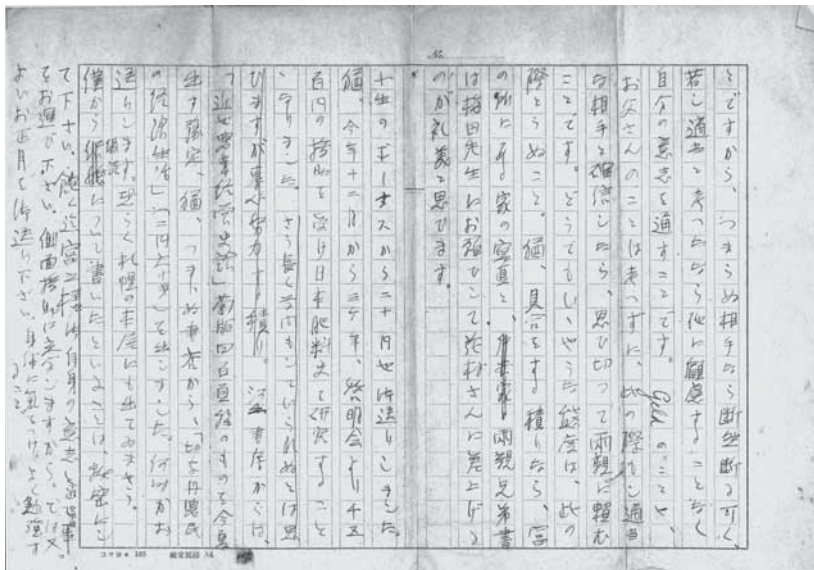 とですから、つまらぬ相手なら断然断る可く、
若し適当と考つたなら他に顧慮することなく
自分の意志を通すことです。Geldのことや、
お父さんのことは考へずに、此の際もし適当
な相手と確信したら、思ひ切って両親に頼む
ことです。どうでもいゝやうな態度は、此の
際とらぬこと。猶、見合をする積りなら、
の所にある家の写真と、両親兄弟書
は梅田先生にお頼ひして さんに差上げる
のが礼義と思ひます。
十生のボーナスから二十円也御送りしました。
猶、今年十二月から二ケ年、啓明会より千五
百円の援助を受け日本肥料史を研究すること
ゝなりました。さう長く もしていられぬとは思
ひますが事へ努力する積り。 書店からは、
「近世農業経営史論」菊版四百頁程のものを今春
出す予定、猶、つまらぬ本屋から、「 農民
の経済生活」(二円六十銭)を出しました。何れかお
送りします。恐らく札幌の本屋にも出てゐませう。
僕から縁談について書いたといふことは、秘密にし
て下さい。飽く迄 御自身の意志
をお選び下さい。側面援助は しますから。では又。
よいお正月を御送り下さい。身体に気をつけ、よく勉強す
ること
No.
コクヨ